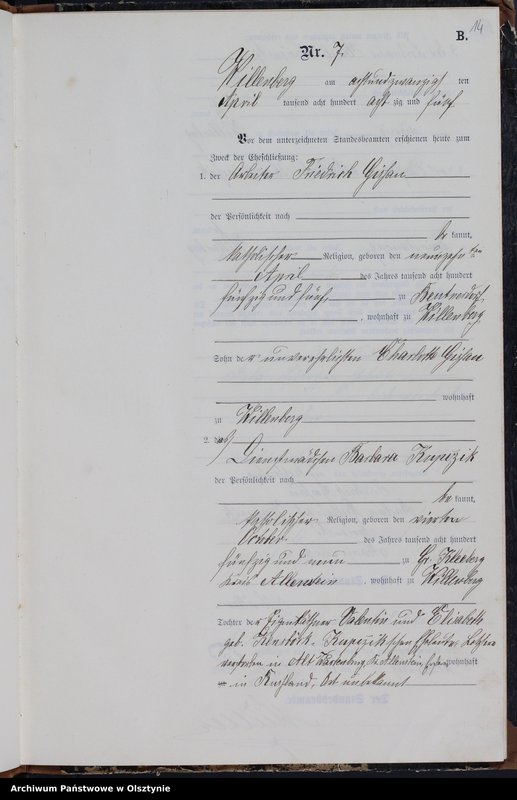 14
B.
Nr. 7
Willenberg am achtundzwanzigs ten
April tausend acht hundert acht zig und fünf
Vor dem unterzeichneten Standesbeamten erschienen heute zum
Zweck der Eheschließung:
1. der Arbeiter Friedrich
der Persönlichkeit nach
be kannt,
katholischer Religion, geboren den neunzehn ten
April des Jahres tausend acht hundert
fünfzig und fünf zu
, wohnhaft zu Willenberg
Sohn der unverehelichten Charlotte
wohnhaft
zu Willenberg
2. das
Dienstmädchen Barbara
der Persönlichkeit nach
be kannt,
katholischer Religion, geboren den vierten
October des Jahres tausend acht hundert
fünfzig und neun zu Gr. Kleeberg
Kreis Allenstein, wohnhaft zu Willenberg
Tochter der Eigenkäthner Valentin und Elisabeth
geb. schen Eheleute, Letztere
verstorben in Alt Wartenburg Kr. Allenstein, Ersterer wohnhaft
in Rußland, Ort unbekannt
Archiwum Państwowe w Olsztynie